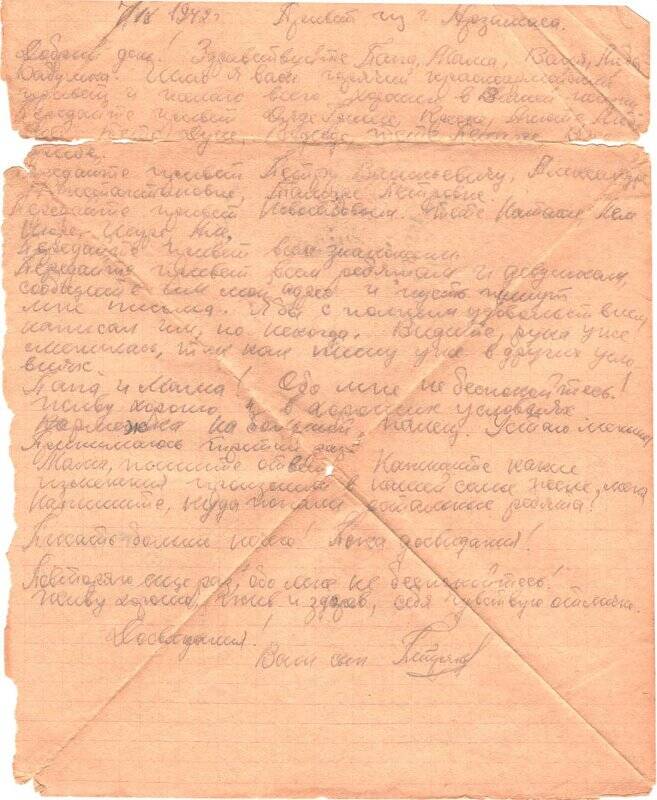 7/IX 1942 г. Привет из г. Арзамаса.
Добрый день! Здравствуйте Папа, Мама, Ваня, Лида
Бабушка. Шлю я вам горячий красноармейский
привет и желаю всего хорошего в Вашей жизни.
Передайте привет Дяде
тете
Передайте привет Петру Васильевичу, Александре
Константиновне, Тамаре Петровне.
Передайте привет тете Наташе
Шуре,
Передайте привет всем знакомым.
Передайте привет всем ребятам и девушкам,
сообщите им мой адрес и пусть пишут
мне письма. Я бы с полным удовольствием
написал им, но некогда. Видите рука уже
сменилась, так как пишу уже в других усло
виях.
Папа и Мама! Обо мне не беспокойтесь!
Живу хорошо, в хороших условиях
Кормежка на большой палец. Устаю
Принимаюсь третий раз.
Мама, пишите ответ. Напишите какие
изменения произошли в нашей
Напишите, куда попали остальные ребята!
Писать больше нечего! Пока досвидания!
Повторяю еще раз, обо мне не беспокойтесь!
Живу хорошо, жив и здоров, себя чувствую отлично.
Досвидания!
Ваш сын Петр